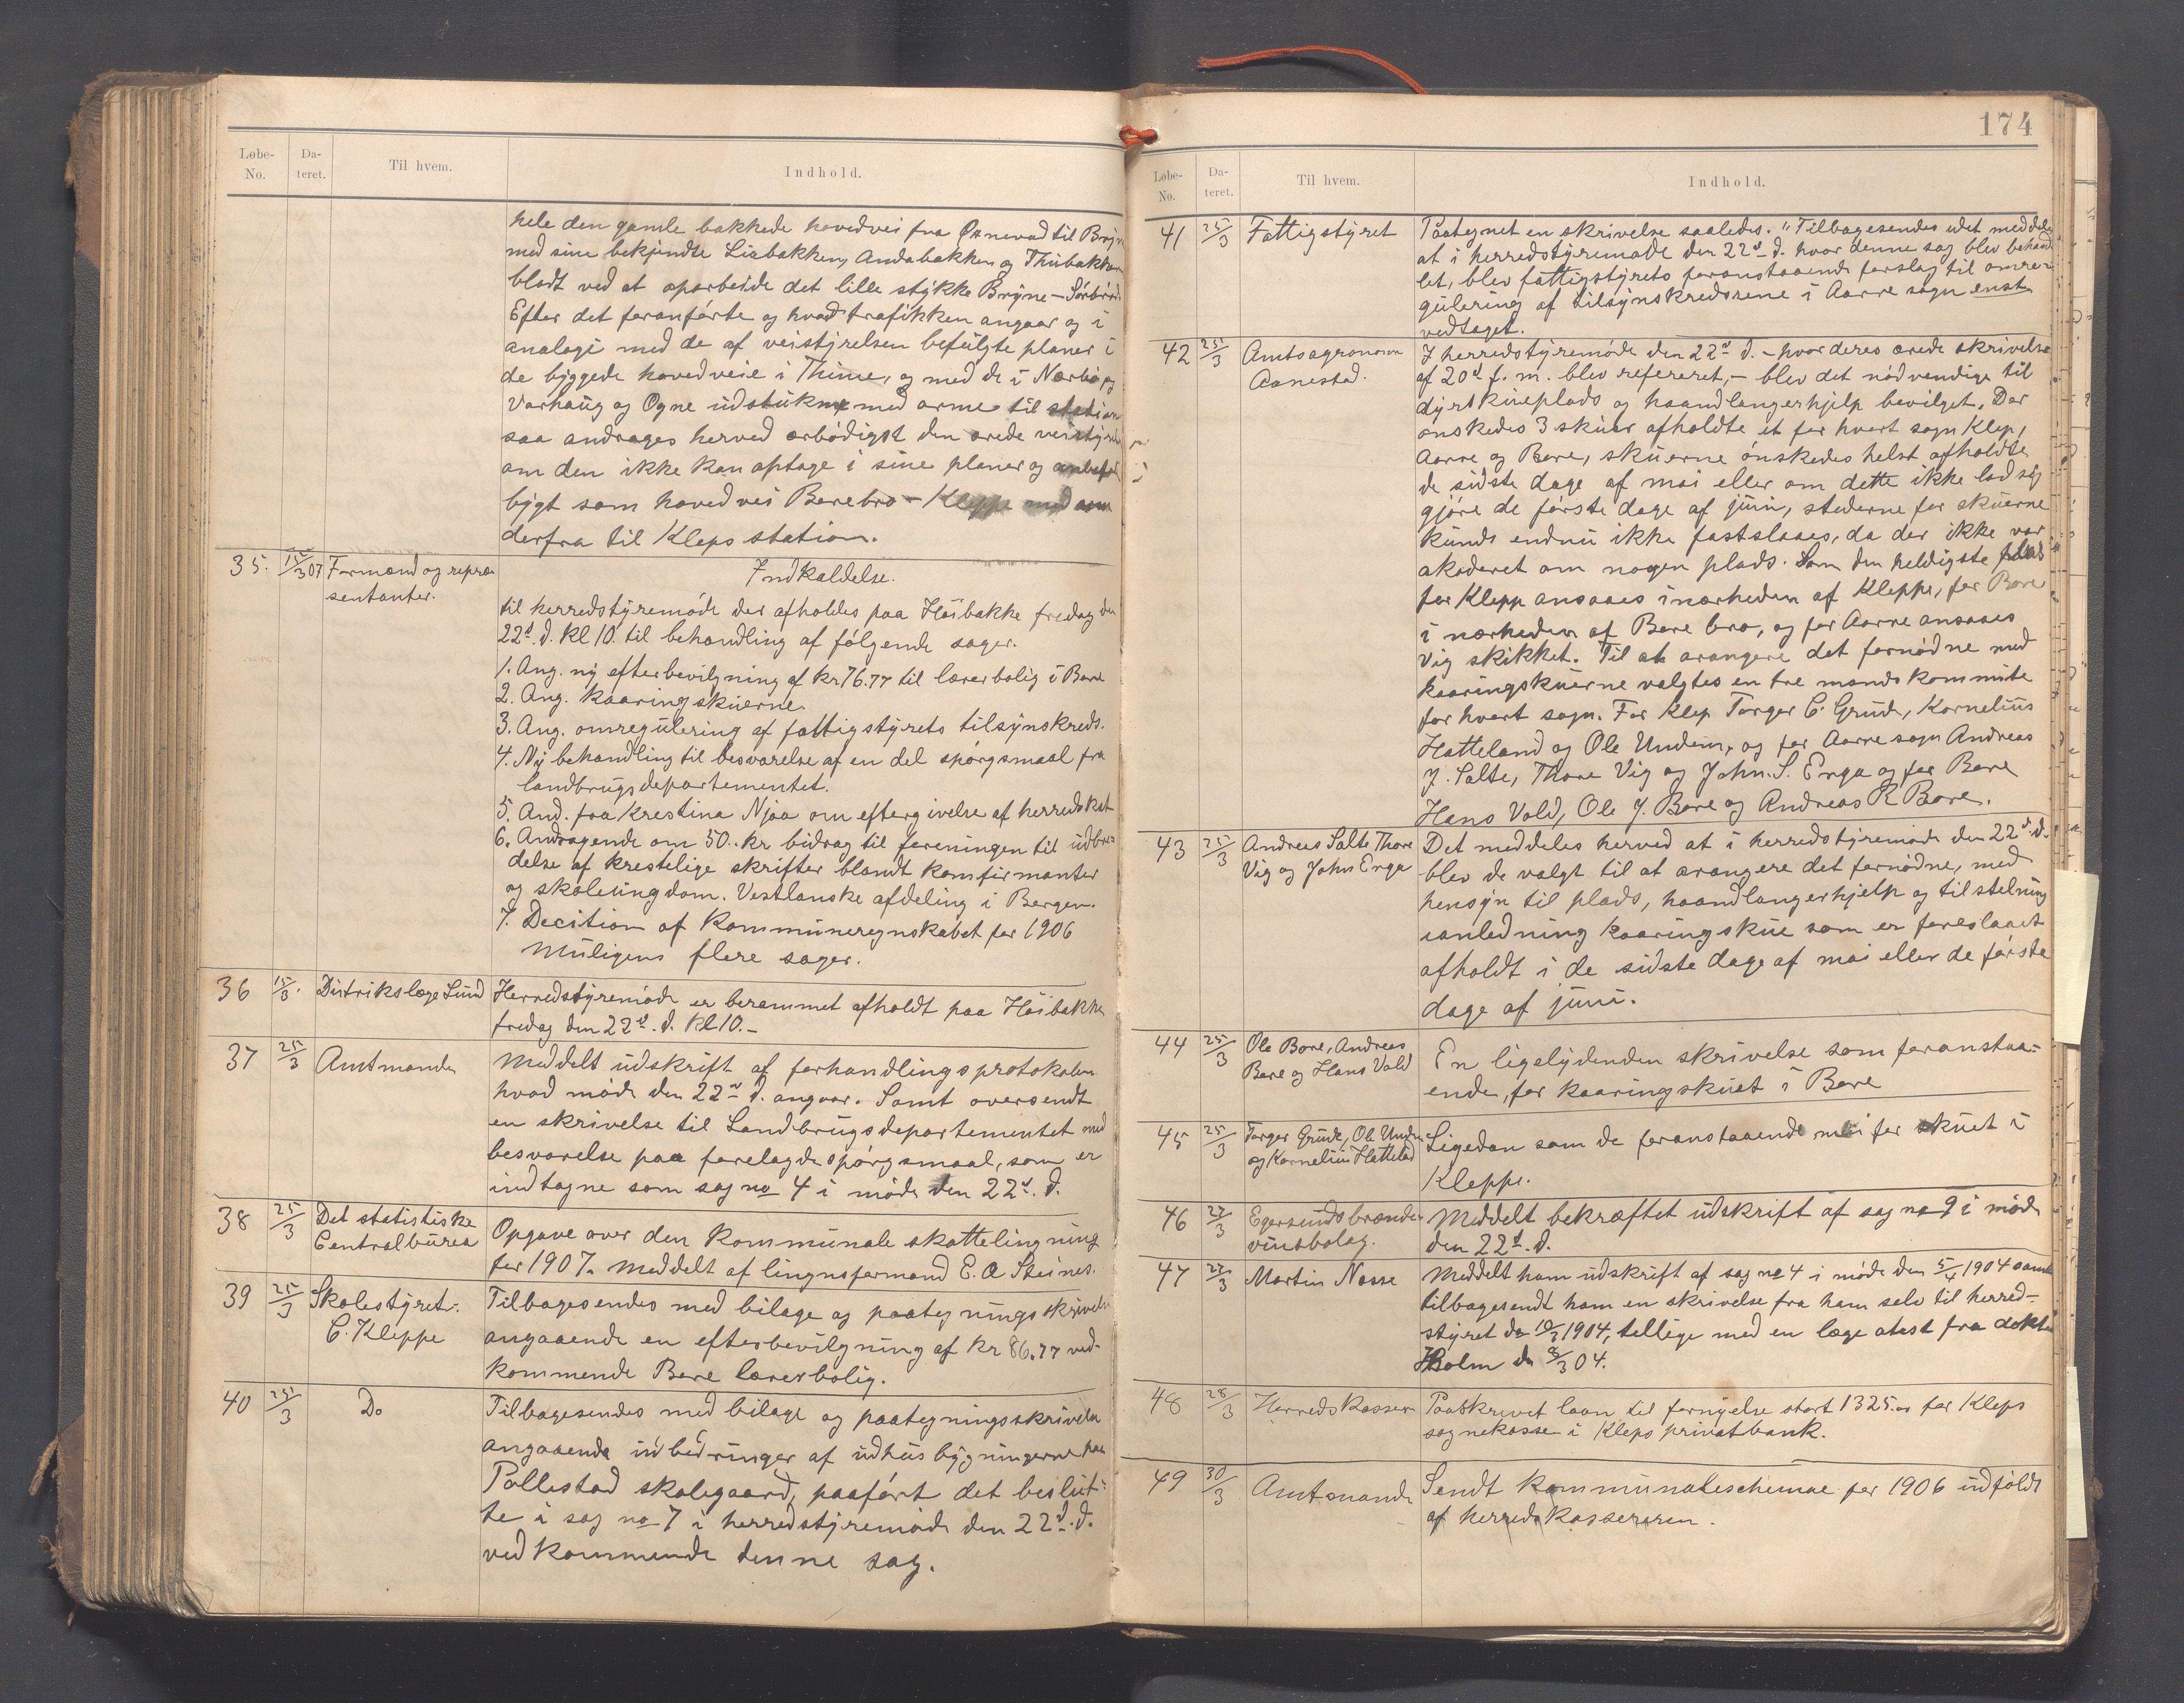 Løbe-No. Da-teret. Til hvem. Indhold.
hele den gamle bakkede hovedvei fra Øxnevad til Bryn
med sine bekjendte Liabakken, Andabakken og Thubakken
blodt ved at oparbeide det lille stykke Bryne – Sørbrød
Efter det foranførte og hvad trafikken angaar og i
analogi med de af veistyrelsen befulgte planer i
de byggede hovedveie i Thime, og med de i Nærbø og
Varhaug og Ogne udstukne med arme til station
saa andrages herved ærbødigst den ærede veistyr
om den ikke kan optage i sine planer og anbefal
bygt som hovedvei Borebro – Kleppe med arm
derfra til Kleps station.
35. 15/3 07 Formænd og repræ-
sentanter.
Indkaldelse.
til herredstyremøde der afholdes paa Høibakke fredag den
22d. d. kl 10. til behandling af følgende sager.
1. Ang. ny efterbevilgning af kr 76.77 til lærerbolig i Bore
2. Ang. kaaringskuerne.
3. Ang. omregulering af fattigstyrets tilsynskreds.
4. Ny behandling til besvarelse af en del spørgsmaal fra
landbrugsdepartementet.
5. And. fra Krestina Njaa om eftergivelse af herredskat
6. Andragende om 50.. kr bidrag til foreningen til udbre-
delse af krestelige skrifter blandt konfirmanter
og skoleungdom. Vestlanske afdeling i Bergen.
7. Decition af Kommuneregnskabet for 1906
Muligens flere sager.
36 15/3. Distrikslæge Lund Herredstyremøde er berammet afholdt paa Høibakke
fredag den 22d. d. kl 10. –
37 25/3 Amtmanden Meddelt udskrift af forhandlingsprotokolen
hvad møde den 22d d. angaar. Samt oversendt
en skrivelse til Landbrugsdepartementet med
besvarelse paa forelagde spørgsmaal, som er
indtagne som sag no 4 i møde den 22d. d.
38 25/3 Det statistiske
Centralburea
Opgave over den kommunale skattelingning
for 1907. Meddelt af lingnsformand E. A Steines.
39 25/3 Skolestyret.
C. Kleppe
Tilbagesendes med bilage og paategningsskrivelse
angaaende en efterbevilgning af kr 86.77 ved-
kommende Bore lærerbolig.
40 25/3 Do Tilbagesendes med bilage og paategningsskrivelse
angaaende udbedringer af udhusbygningerne paa
Pollestad skolegaard, paaført det beslut-
te i sag no 7 i herredstyremøde den 22d. d.
vedkommende denne sag.
174
Løbe-No. Da-teret. Til hvem. Indhold.
41 25/3 Fattigstyret Paategnet en skrivelse saaledes. "Tilbagesendes idet meddeles
at i herredstyremøde den 22d d. hvor denne sag blev behand
let, blev fattigstyrets foranstaaende forslag til omre-
gulering af tilsynskredsene i Aarre sogn enst
vedtaget.
42 25/3 Amtsagronom
Aanestad.
I herredstyremøde den 22d d. – hvor deres ærede skrivelse
af 20d f. m. blev refereret, – blev det nødvendige til
dyrskueplads og haandlangerhjelp bevilget. Der
ønskedes 3 skuer afholdte et for hvert sogn Klep,
Aarre og Bore, skuerne ønskedes helst afholdte
de sidste dage af mai eller om dette ikke lod sig
gjøre de første dage af juni, stederne for skuerne
kunde endnu ikke fastslaaes, da der ikke var
akoderet om nogen plads. Som den heldigste plads
for Klepp ansaaes i nærheden af Kleppe, for Bore
i nærheden af Bore bro, og for Aarre ansaaes
Vig skikket. Til at arangere det fornødne med
kaaringskuerne valgtes en tre mands kommite
for hvert sogn. For Klep Torger C. Grude, Kornelius
Hatteland og Ole Undem, og for Aarre sogn Andreas
J. Salte, Thore Vig og John. S. Erga og for Bore
Hans Vold, Ole J. Bore og Andreas R Bore.
43 25/3 Andreas Salte Thore
Vig og John Erga
Det meddeles herved at i herredstyremøde den 22d. d.
blev de valgt til at arangere det fornødne, med
hensyn til plads, haandlangerhjelp og tilstelning
ianledning kaaringskue som er foreslaaet
afholdt i de sidste dage af mai eller de første
dage af juni.
44 25/3 Ole Bore, Andreas
Bore og Hans Vold
En ligelydenden skrivelse som foranstaa-
ende, for kaaringskuet i Bore
45 25/3 Torger Grude, Ole Undem
og Kornelius Hatteland
Ligedan som de foranstaaende men for skuet i
Kleppe.
46 27/3 Egersunds brænde-
vinsbolag.
Meddelt bekræftet udskrift af sag no 9 i møde
den 22d. d.
47 27/3 Martin Nasse Meddelt ham udskrift af sag no 4 i møde den 5/4 1904 samt
tilbagesendt ham en skrivelse fra ham selv til herred-
styret de 10/3 1904, tellige med en læge atest fra doktor
Holm de 8/3 04.
48 28/3 Herredskasser Paaskrevet laan til fornyelse stort 1325.00 for Kleps
sognekasse i Kleps privatbank.
49 30/3 Amtmande Sendt kommunaleschemae for 1906 udføldt
af herredskassereren.